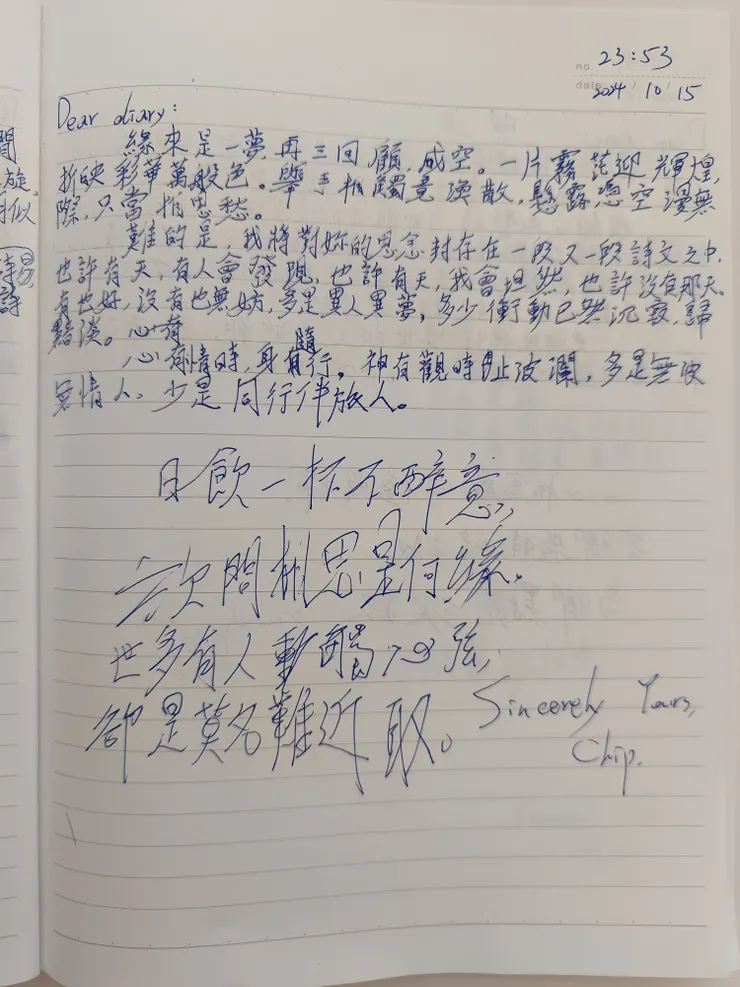 no. 23:53
date 2024 / 10 / 15
Dear diary:
緣來是一夢,再三回顧,成空。一片霧茫迎輝煌,
折映彩華萬般色。舉手相觸竟渙散,懸露憑空漫無
際,只當拍思愁。
難的是,我將對妳的思念封存在一段又一段詩文之中,
也許有天,有人會發現,也許有天,我會坦然,也許沒有那天。
有也好,沒有也無妨,多是異人異夢,多少衝動已然沉寂,歸
黯淡。心有
心有情時,身隨行。神有觀時止波瀾,多是無波
無情人,少是同行伴旅人。
日飲一杯不醉意,
六次問相思是何緣。
世多有人動觸心弦,
卻是莫名難近取。
Sincerely Yours,
Chip.
間
旋,
似
詩